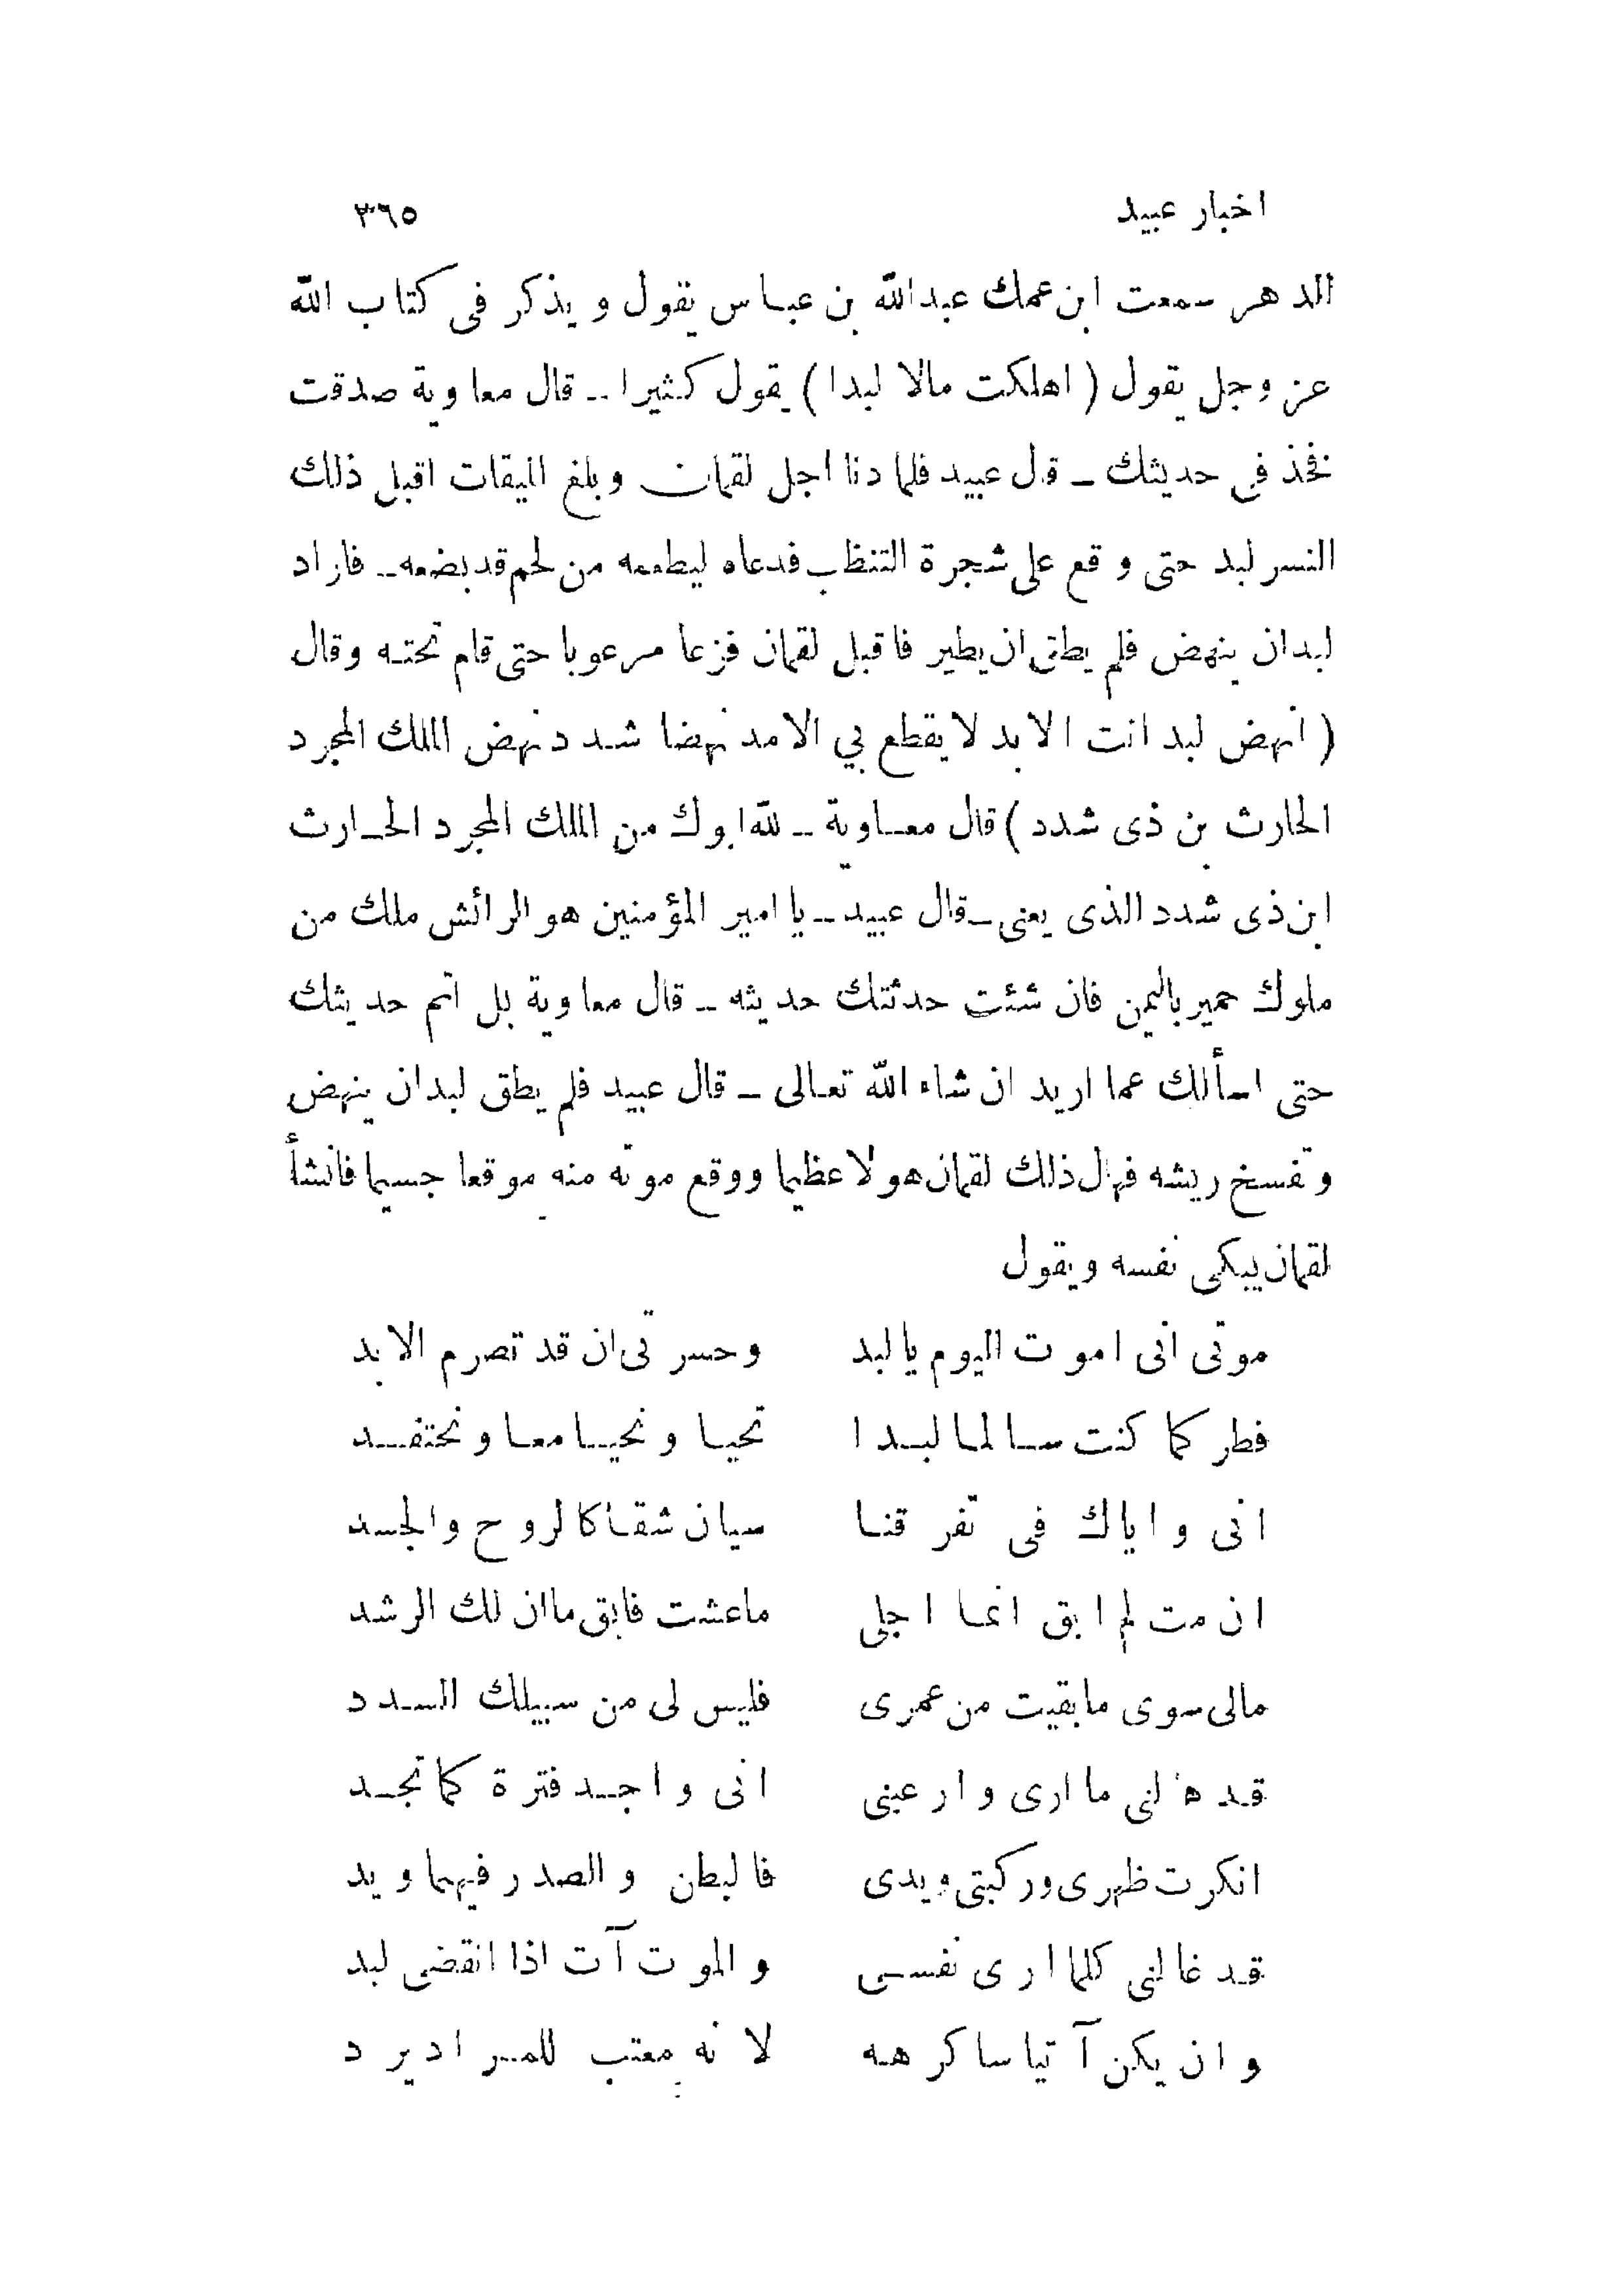 اخبار عبيد ٣٦٥
الدهر سمعت ابن عمك عبدالله بن عباس يقول ويذكر فى كتاب الله
عز وجل يقول ( اهلكت مالا لبدا ) يقول كثيرا ـ قال معاوية صدقت
نخذ فى حديثك ـ قال عبيد فلما دنا اجل لقمان وبلغ الميقات اقبل ذلك
النسر لبد حتى وقع على شجرة التنظب فدعاه ليطعمه من لحم قد بضعه ـ فاراد
لبد ان ينهض فلم يطق ان يطير فاقبل لقمان فزعا مرعوبا حتى قام تحته وقال
( انهض لبد انت الابد لا يقطع بي الامد نهضا شدد نهض الملك المجرد
الحارث بن ذى شدد ) قال معاوية ـ لله ابوك من الملك المجرد الحارث
ابن ذى شدد الذى يعنى ـ قال عبيد ـ يا امير المؤمنين هو الرائش ملك من
ملوك حمير باليمن فان شئت حدثتك حديثه ـ قال معاوية بل اتم حديثك
حتى اسألك عما اريد ان شاء الله تعالى ـ قال عبيد فلم يطق لبد ان ينهض
وتفسخ ريشه فهال ذلك لقمان هولا عظيما ووقع موته منه موقعا جسيما فانشأ
لقمان يبكى نفسه ويقول
موتى انى اموت اليوم يا لبد وحسرتى ان قد تصرم الابد
فطر كما كنت سالما لبدا تحيا ونحيا معا ونحتفد
انى واياك فى تفرقنا سيان شقا كالروح والجسد
ان مت لم ابق انما اجلى ما عشت فابق ما ان لك الرشد
مالى سوى ما بقيت من عمرى فليس لى من سبيلك السدد
قد هالنى ما ارى وارعبنى انى واجد فترة كما تجد
انكرت ظهرى وركبتى ويدى فالبطن والصدر فيهما ويد
قد غالنى كلما ارى نفسى والموت آت اذا انقضى لبد
وان يكن آتيا ساكرهه لانه معتب للمراد يرد